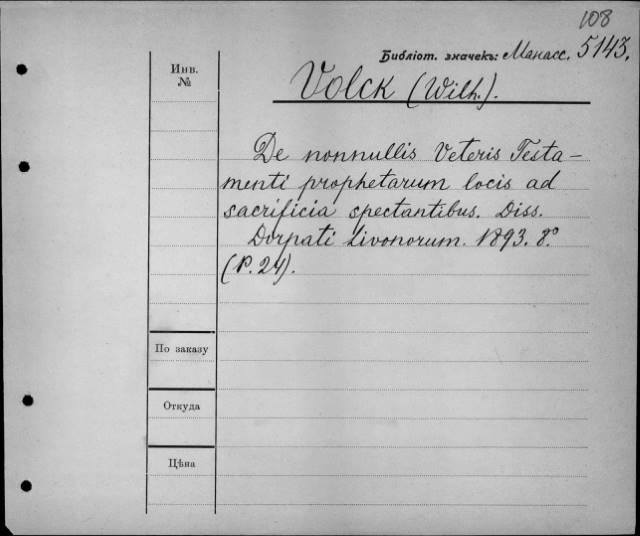 108
Библіот. значекъ: Манасс. 5143.
Инв.
№
Volck (Wilh.).
De nonnullis Veteris Testa-
menti prophetarum locis ad
sacrificia spectantibus. Diss.
Dorpati Livonorum. 1893. 8.°
(P. 24).
По заказу
Откуда
Цѣна